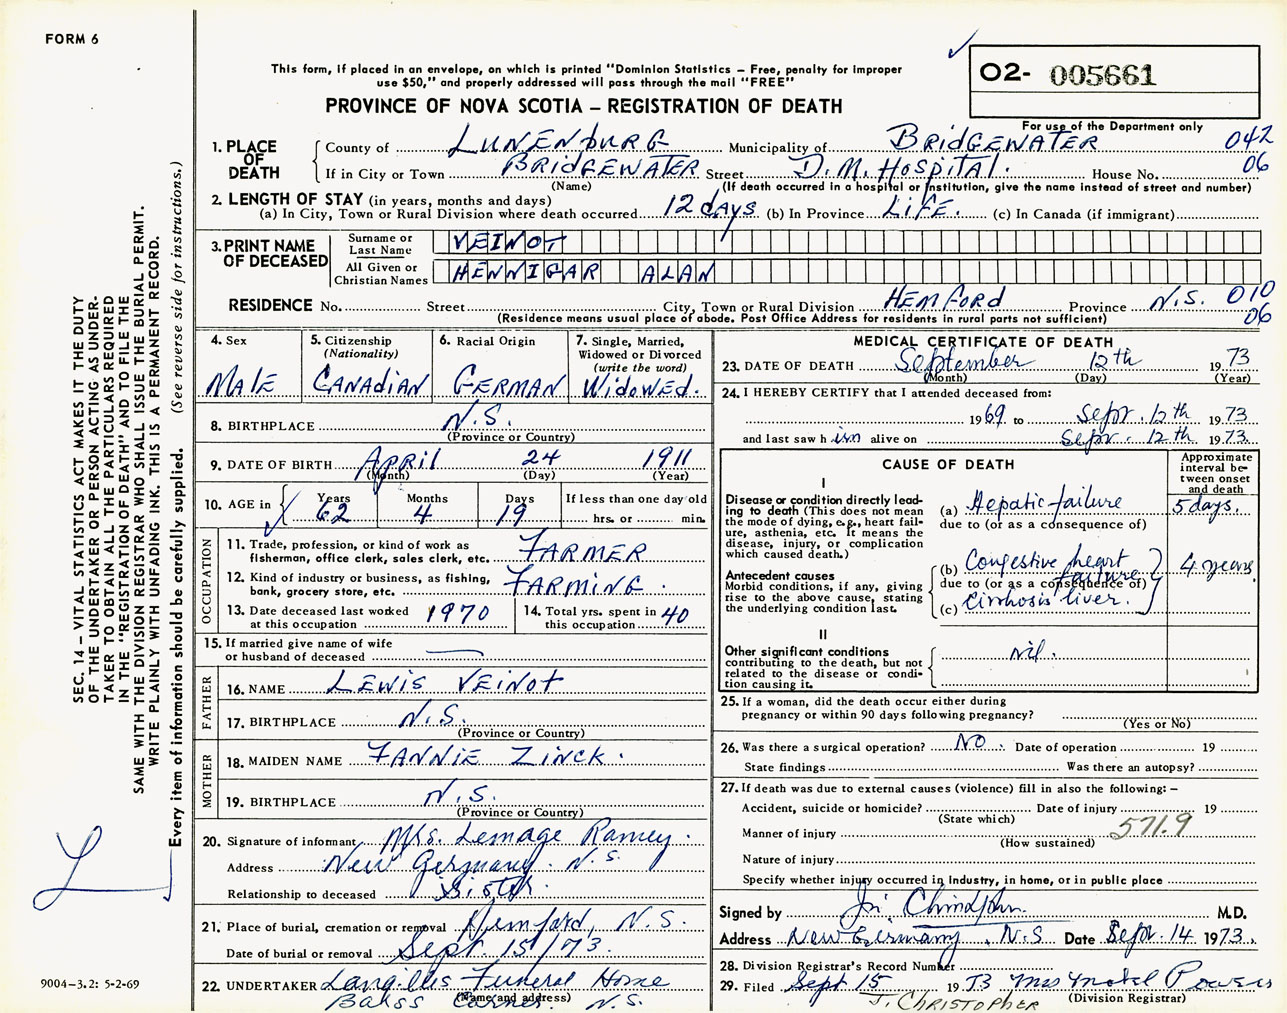 FORM 6
This form, if placed in an envelope, on which is printed "Dominion Statistics – Free, penalty for improper
use $50," and properly addressed will pass through the mail "FREE"
O2- 005661
PROVINCE OF NOVA SCOTIA – REGISTRATION OF DEATH
For use of the Department only
1. PLACE OF DEATH
County of LUNENBURG Municipality of BRIDGEWATER 042
If in City or Town BRIDGEWATER Street D. M. Hospital. House No. 06
(Name) (If death occurred in a hospital or institution, give the name instead of street and number)
2. LENGTH OF STAY (in years, months and days)
(a) In City, Town or Rural Division where death occurred 12 days (b) In Province LIFE. (c) In Canada (if immigrant)
3. PRINT NAME OF DECEASED
Surname or Last Name VEINOT
All Given or Christian Names HENNIGAR ALAN
RESIDENCE No. Street City, Town or Rural Division HEMFORD Province N.S. 010
(Residence means usual place of abode. Post Office Address for residents in rural parts not sufficient) 06
4. Sex
MALE
5. Citizenship (Nationality)
CANADIAN
6. Racial Origin
GERMAN
7. Single, Married, Widowed or Divorced (write the word)
WIDOWED.
8. BIRTHPLACE N.S.
(Province or Country)
9. DATE OF BIRTH April 24 1911
(Month) (Day) (Year)
10. AGE in Years Months Days If less than one day old
62 4 19 hrs. or min.
OCCUPATION
11. Trade, profession, or kind of work as
fisherman, office clerk, sales clerk, etc. FARMER
12. Kind of industry or business, as fishing,
bank, grocery store, etc. FARMING.
13. Date deceased last worked
at this occupation 1970
14. Total yrs. spent in
this occupation 40
15. If married give name of wife
or husband of deceased
FATHER
16. NAME LEWIS VEINOT
17. BIRTHPLACE N.S.
(Province or Country)
MOTHER
18. MAIDEN NAME FANNIE ZINCK.
19. BIRTHPLACE N.S.
(Province or Country)
20. Signature of informant Mrs. Lemage Ramey.
Address New Germany. N.S.
Relationship to deceased Sister.
21. Place of burial, cremation or removal Hemford, N.S.
Date of burial or removal Sept. 15/73.
22. UNDERTAKER Langilles Funeral Home
(Name and address)
Barss Corner. N.S.
MEDICAL CERTIFICATE OF DEATH
23. DATE OF DEATH September 12th 1973
(Month) (Day) (Year)
24. I HEREBY CERTIFY that I attended deceased from:
1969 to Sept. 12th 1973
and last saw him alive on Sept. 12th 1973.
CAUSE OF DEATH
Approximate interval between onset and death
I
Disease or condition directly lead-
ing to death (This does not mean
the mode of dying, e.g., heart fail-
ure, asthenia, etc. It means the
disease, injury, or complication
which caused death.)
(a) Hepatic failure 5 days.
due to (or as a consequence of)
Antecedent causes
Morbid conditions, if any, giving
rise to the above cause, stating
the underlying condition last.
(b) Congestive heart failure 4 years
due to (or as a consequence of)
(c) Cirrhosis liver.
II
Other significant conditions
contributing to the death, but not
related to the disease or condi-
tion causing it.
nil.
25. If a woman, did the death occur either during
pregnancy or within 90 days following pregnancy?
(Yes or No)
26. Was there a surgical operation? NO. Date of operation 19
State findings Was there an autopsy?
27. If death was due to external causes (violence) fill in also the following: –
Accident, suicide or homicide? Date of injury 19
(State which)
571.9
Manner of injury
(How sustained)
Nature of injury
Specify whether injury occurred in industry, in home, or in public place
Signed by M.D.
Address New Germany, N.S Date Sept. 14 1973.
28. Division Registrar's Record Number
29. Filed Sept 15 1973 Mrs Powers
(Division Registrar)
J. CHRISTOPHER
SEC. 14 – VITAL STATISTICS ACT MAKES IT THE DUTY
OF THE UNDERTAKER OR PERSON ACTING AS UNDER-
TAKER TO OBTAIN ALL THE PARTICULARS REQUIRED
IN THE "REGISTRATION OF DEATH" AND TO FILE THE
SAME WITH THE DIVISION REGISTRAR WHO SHALL ISSUE THE BURIAL PERMIT.
WRITE PLAINLY WITH UNFADING INK. THIS IS A PERMANENT RECORD.
Every item of information should be carefully supplied. (See reverse side for instructions.)
9004–3.2: 5-2-69